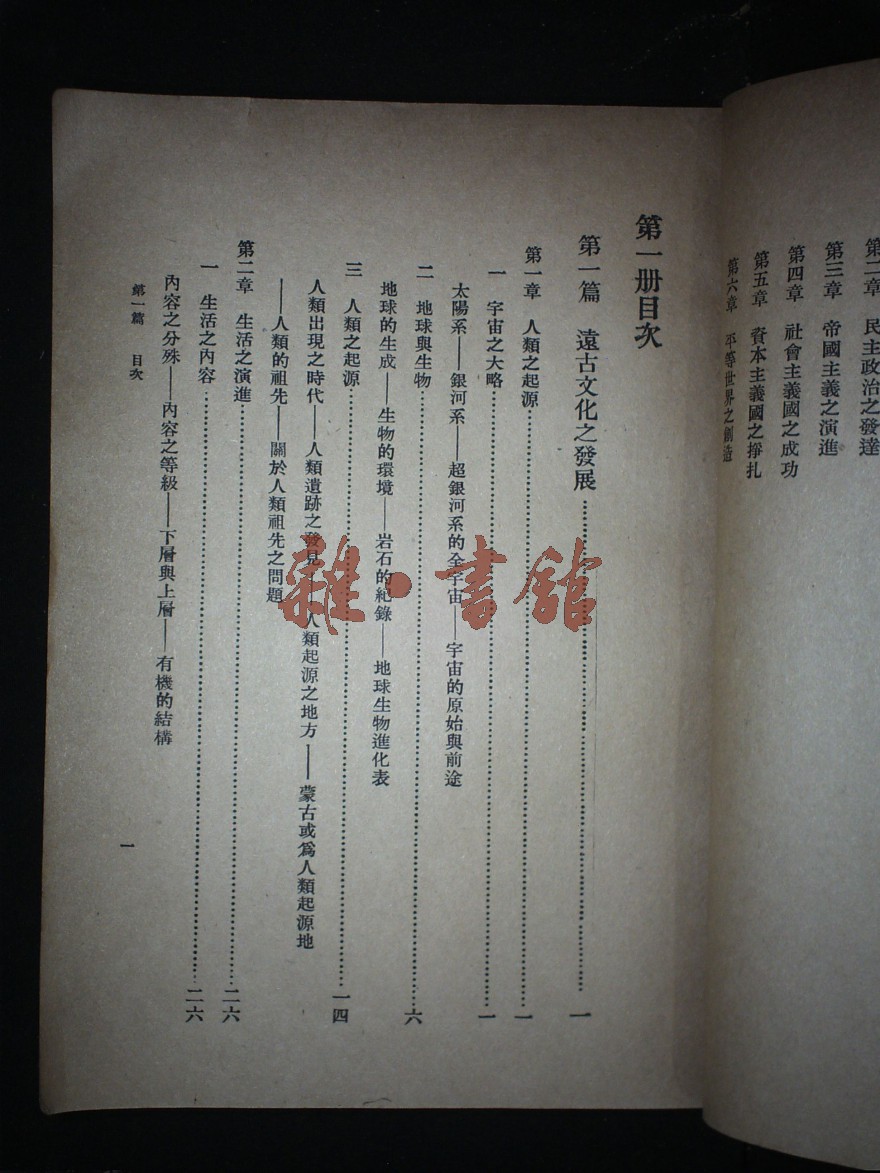 第二章 民主政治之發達
第三章 帝國主義之演進
第四章 社會主義國之成功
第五章 資本主義國之掙扎
第六章 平等世界之創造
第一册目次
第一篇 遠古文化之發展……一
第一章 人類之起源……一
一 宇宙之大略……一
太陽系——銀河系——超銀河系的全宇宙——宇宙的原始與前途
二 地球與生物……六
地球的生成——生物的環境——岩石的紀錄——地球生物進化表
三 人類之起源……一四
人類出現之時代——人類遺跡之發見——人類起源之地方——蒙古或爲人類起源地
——人類的祖先——關於人類祖先之問題
第二章 生活之演進……二六
一 生活之內容……二六
內容之分殊——內容之等級——下層與上層——有機的結構
第一篇 目次
一
雜·書館